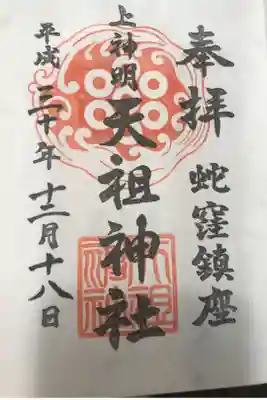 奉拝
蛇窪鎮座
上神明
天祖神社
平成三十年十二月十八日